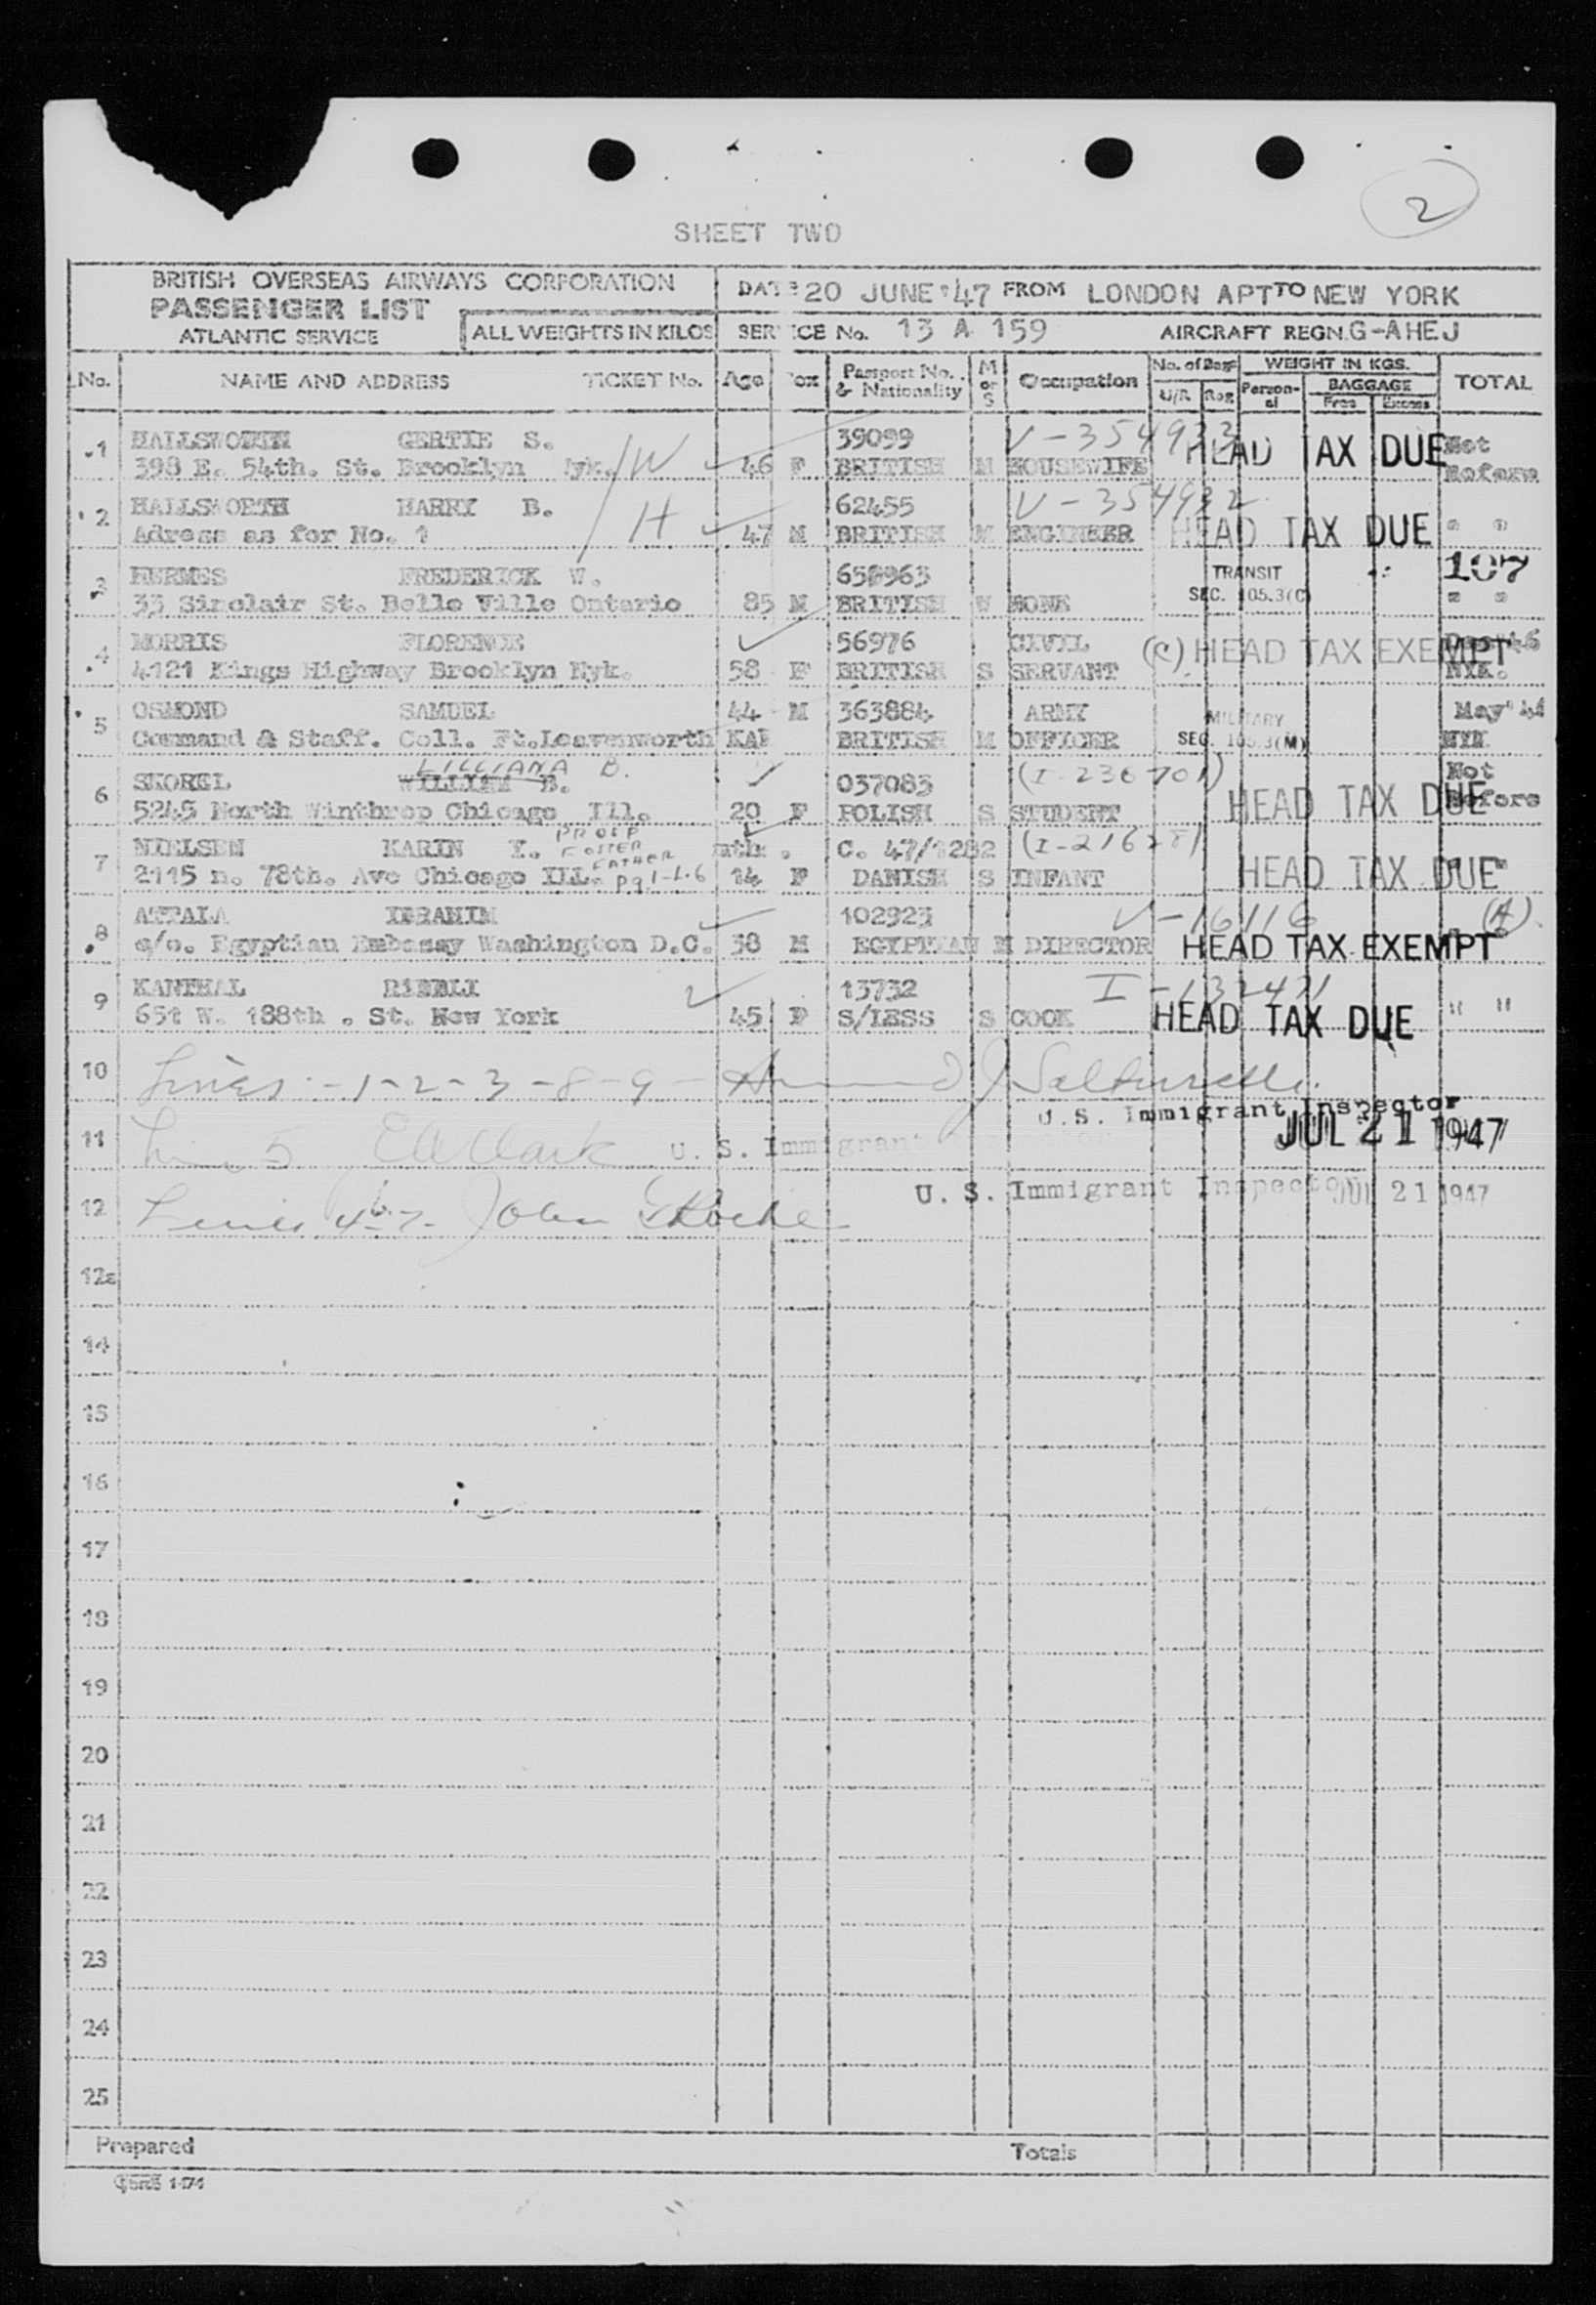 2
SHEET TWO
BRITISH OVERSEAS AIRWAYS CORPORATION
PASSENGER LIST
ATLANTIC SERVICE
ALL WEIGHTS IN KILOS
DATE 20 JUNE '47 FROM LONDON APT TO NEW YORK
SER ICE No. 13 A 159 AIRCRAFT REGN. G-AHEJ
No. NAME AND ADDRESS TICKET No. Age ox Passport No. & Nationality M or S Occupation No. of Bags U/R Reg WEIGHT IN KGS. Person-al BAGGAGE Free Excess TOTAL
1 HALLSWORTH GERTIE S. 39099 V-354933 HEAD TAX DUE Not
398 E. 54th. St. Brooklyn Nyk. W 46 F BRITISH M HOUSEWIFE Before
2 HALLSWORTH HARRY B. 62455 V-354932
Adress as for No. 1 H 47 M BRITISH M ENGINEER HEAD TAX DUE " "
3 HERMES FREDERICK W. 658963 TRANSIT 107
33 Sinclair St. Belle Ville Ontario 85 M BRITISH W NONE SEC. 105.3(C) " "
4 MORRIS FLORENCE 56976 CIVIL (C) HEAD TAX EXEMPT
4121 Kings Highway Brooklyn Nyk. 58 F BRITISH S SERVANT NYK.
5 OSMOND SAMUEL 44 M 363884 ARMY MILITARY May
Command & Staff. Coll. Ft.Leavenworth KAN BRITISH M OFFICER SEC. 105.3(M) NYK
LILLIANA B.
6 SKOREL B. 037083 (I-236701) Not
5245 North Winthrop Chicago Ill. 20 F POLISH S STUDENT HEAD TAX DUE Before
PROSP FOSTER FATHER
7 NIELSEN KARIN Y. mth. C. 47/1282 (I-21628)
2115 n. 78th. Ave Chicago ILL. 14 F DANISH S INFANT HEAD TAX DUE
8 ATTALA IBRAHIM 102923 V-16116 (A)
c/o. Egyptian Embassy Washington D.C. 38 M EGYPTIAN M DIRECTOR HEAD TAX EXEMPT
9 KANTHAL 13732 I-132421
651 W. 188th . St. New York 45 F S/LESS S COOK HEAD TAX DUE " "
10 Lines -1-2-3-8-9
U.S. Immigrant Inspector
11 5 Clark U. S. Immigrant JUL 21 1947
12 Lines 4-6-7- John Roche U. S. Immigrant Inspector JUL 21 1947
12a
14
15
16
17
18
19
20
21
22
23
24
25
Prepared Totals
174